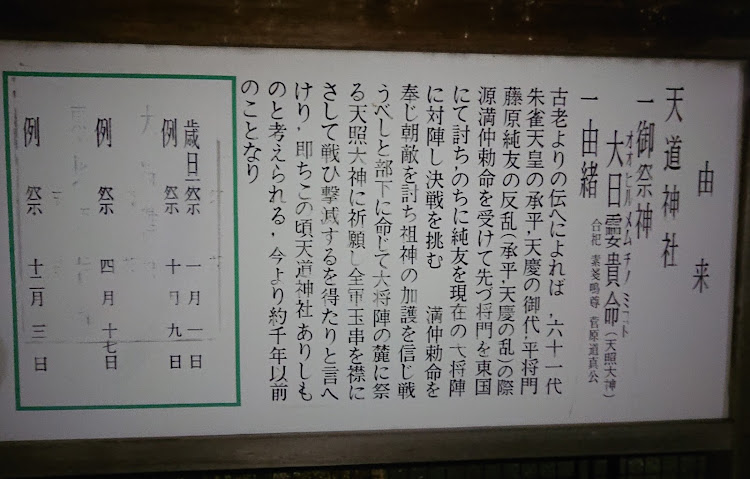 由来
天道神社
一御祭神
オオヒルメムチノミコト
大日孁貴命(天照大神)
合祀 素盞嗚尊 菅原道真公
一由緒
古老よりの伝へによれば、六十一代
朱雀天皇の承平、天慶の御代、平将門
藤原純友の反乱(承平、天慶の乱)の際
源満仲勅命を受けて先づ将門を東国
にて討ち、のちに純友を現在の大将陣
に対陣し決戦を挑む 満仲勅命を
奉じ朝敵を討ち祖神の加護を信じ戦
うべしと部下に命じて大将陣の麓に祭
る天照大神に祈願し全軍玉串を襟に
さして戦ひ撃滅するを得たりと言へ
けり、即ちこの頃天道神社ありしも
のと考えられる、今より約千年以前
のことなり
歳旦祭 一月一日
例祭 十月九日
例祭 四月十七日
例祭 十二月三日